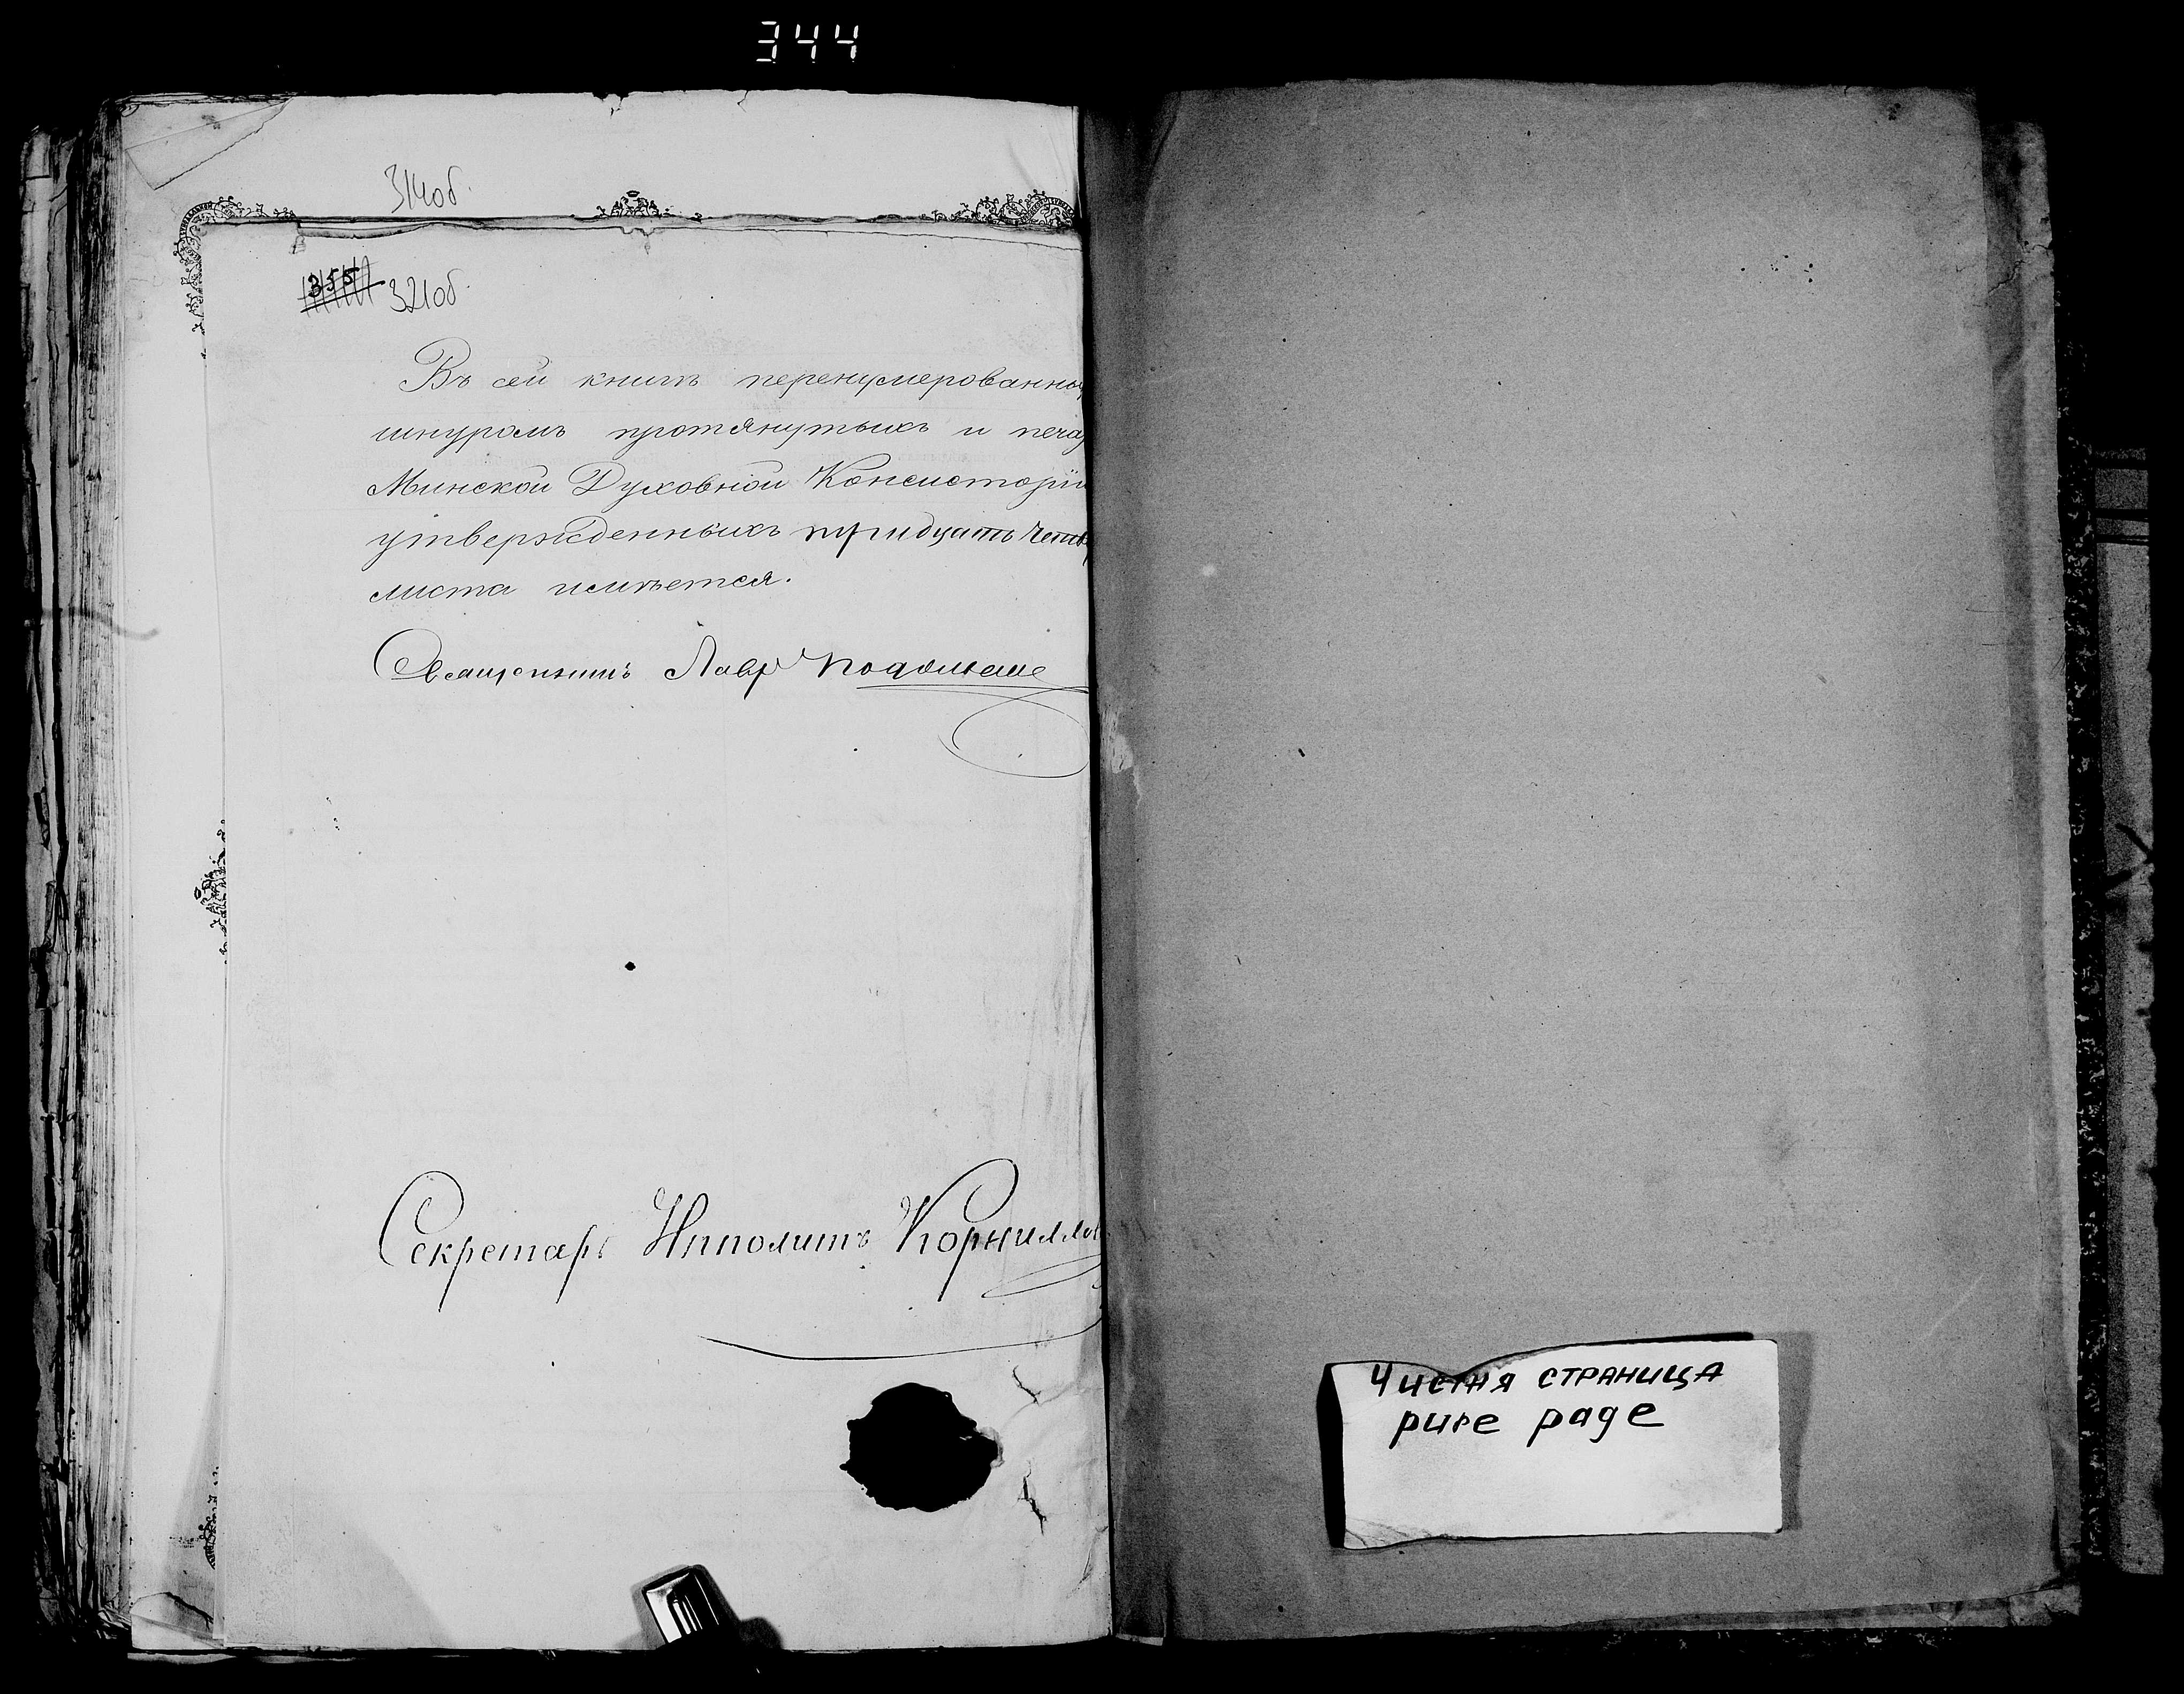 344
314об.
355 321об.
Въ сей книгѣ перенумерованны
шнуромъ протянутыхъ и печа
Минской Духовной Консисторіи
утвержденныхъ тридцать четы
листа имѣется.
Священникъ Лавр
Секретарь Ипполитъ Корнилло
Чистая страница
pure page